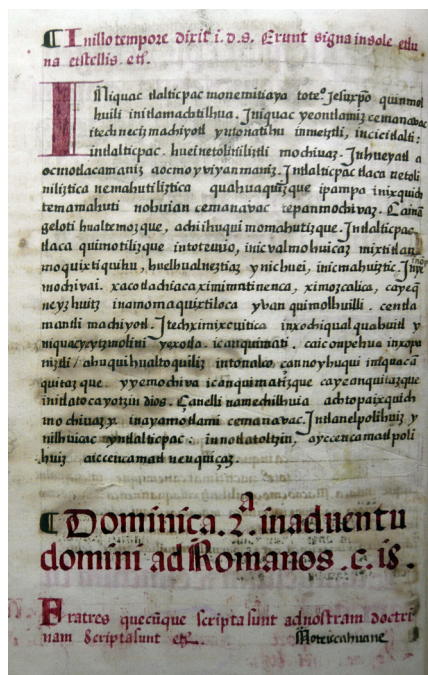 ¶ Inillo tempore dixit i.d.s. Erunt signa insole etlu
na etstellis. etc.
INiquac tlalticpac monemitiaya toteº. Jesuxpo quinmol
huili initlamachtilhua. Iniquac yeontlamiz cemanavac
itech neciz machiyotl yntonatiuh inmeztli, incicitlalti:
intlalticpac. huei netoliniliztli mochivaz. Inhueyatl a
ocmotlacamaniz aocmo yviyan maniz. Intlalticpac tlaca netoli
niliztica nemahutiliztica quahuaquizque ipampa inixquich
temamahuti nohuian cemanavac tepan mochivaz. Ca in
geloti hualtemozque, achi huqui momahutizque. Intlalticpac
tlaca quimotilizque intotecuio, inic valmohuicaz mixtitlan
moquixtiquiuh, huel hualneztiaz ynichuei, inic mahuiztic. Iniquac
mochivai. xacotlachiaca ximimatinenca, ximozcalica, cayeq
neyzhuitz inamomaquixtiloca yvan quimolhuilli. centla
mantli machiyotl. Itech ximixcuitica inxochiqualquahuitl y
niquac yeytzmolini yexotla. icanquimati. caic onpehua inxopa
niztli / ahuqui hualtoquiliz intonalco, çannoyhuqui iniquac a
quitazque yyemochiva icanquimatizque cayeonquizazque
initlatocayotzin dios. Çanelli namechilhuia achtopa ixquich
mochivaz y inayamo tlami cemanavac. Intlanel polihuiz y
nilhuicac yntlalticpac: innotlatoltzin, ayccencamatl poli
huiz aiccencamatl nenquiçaz.
¶ Dominica. 2.ª inaduentu
domini ad Romanos. c. i5.
Fratres quecũque scripta sunt ad nostram doctri
nam Scripta sunt etc.